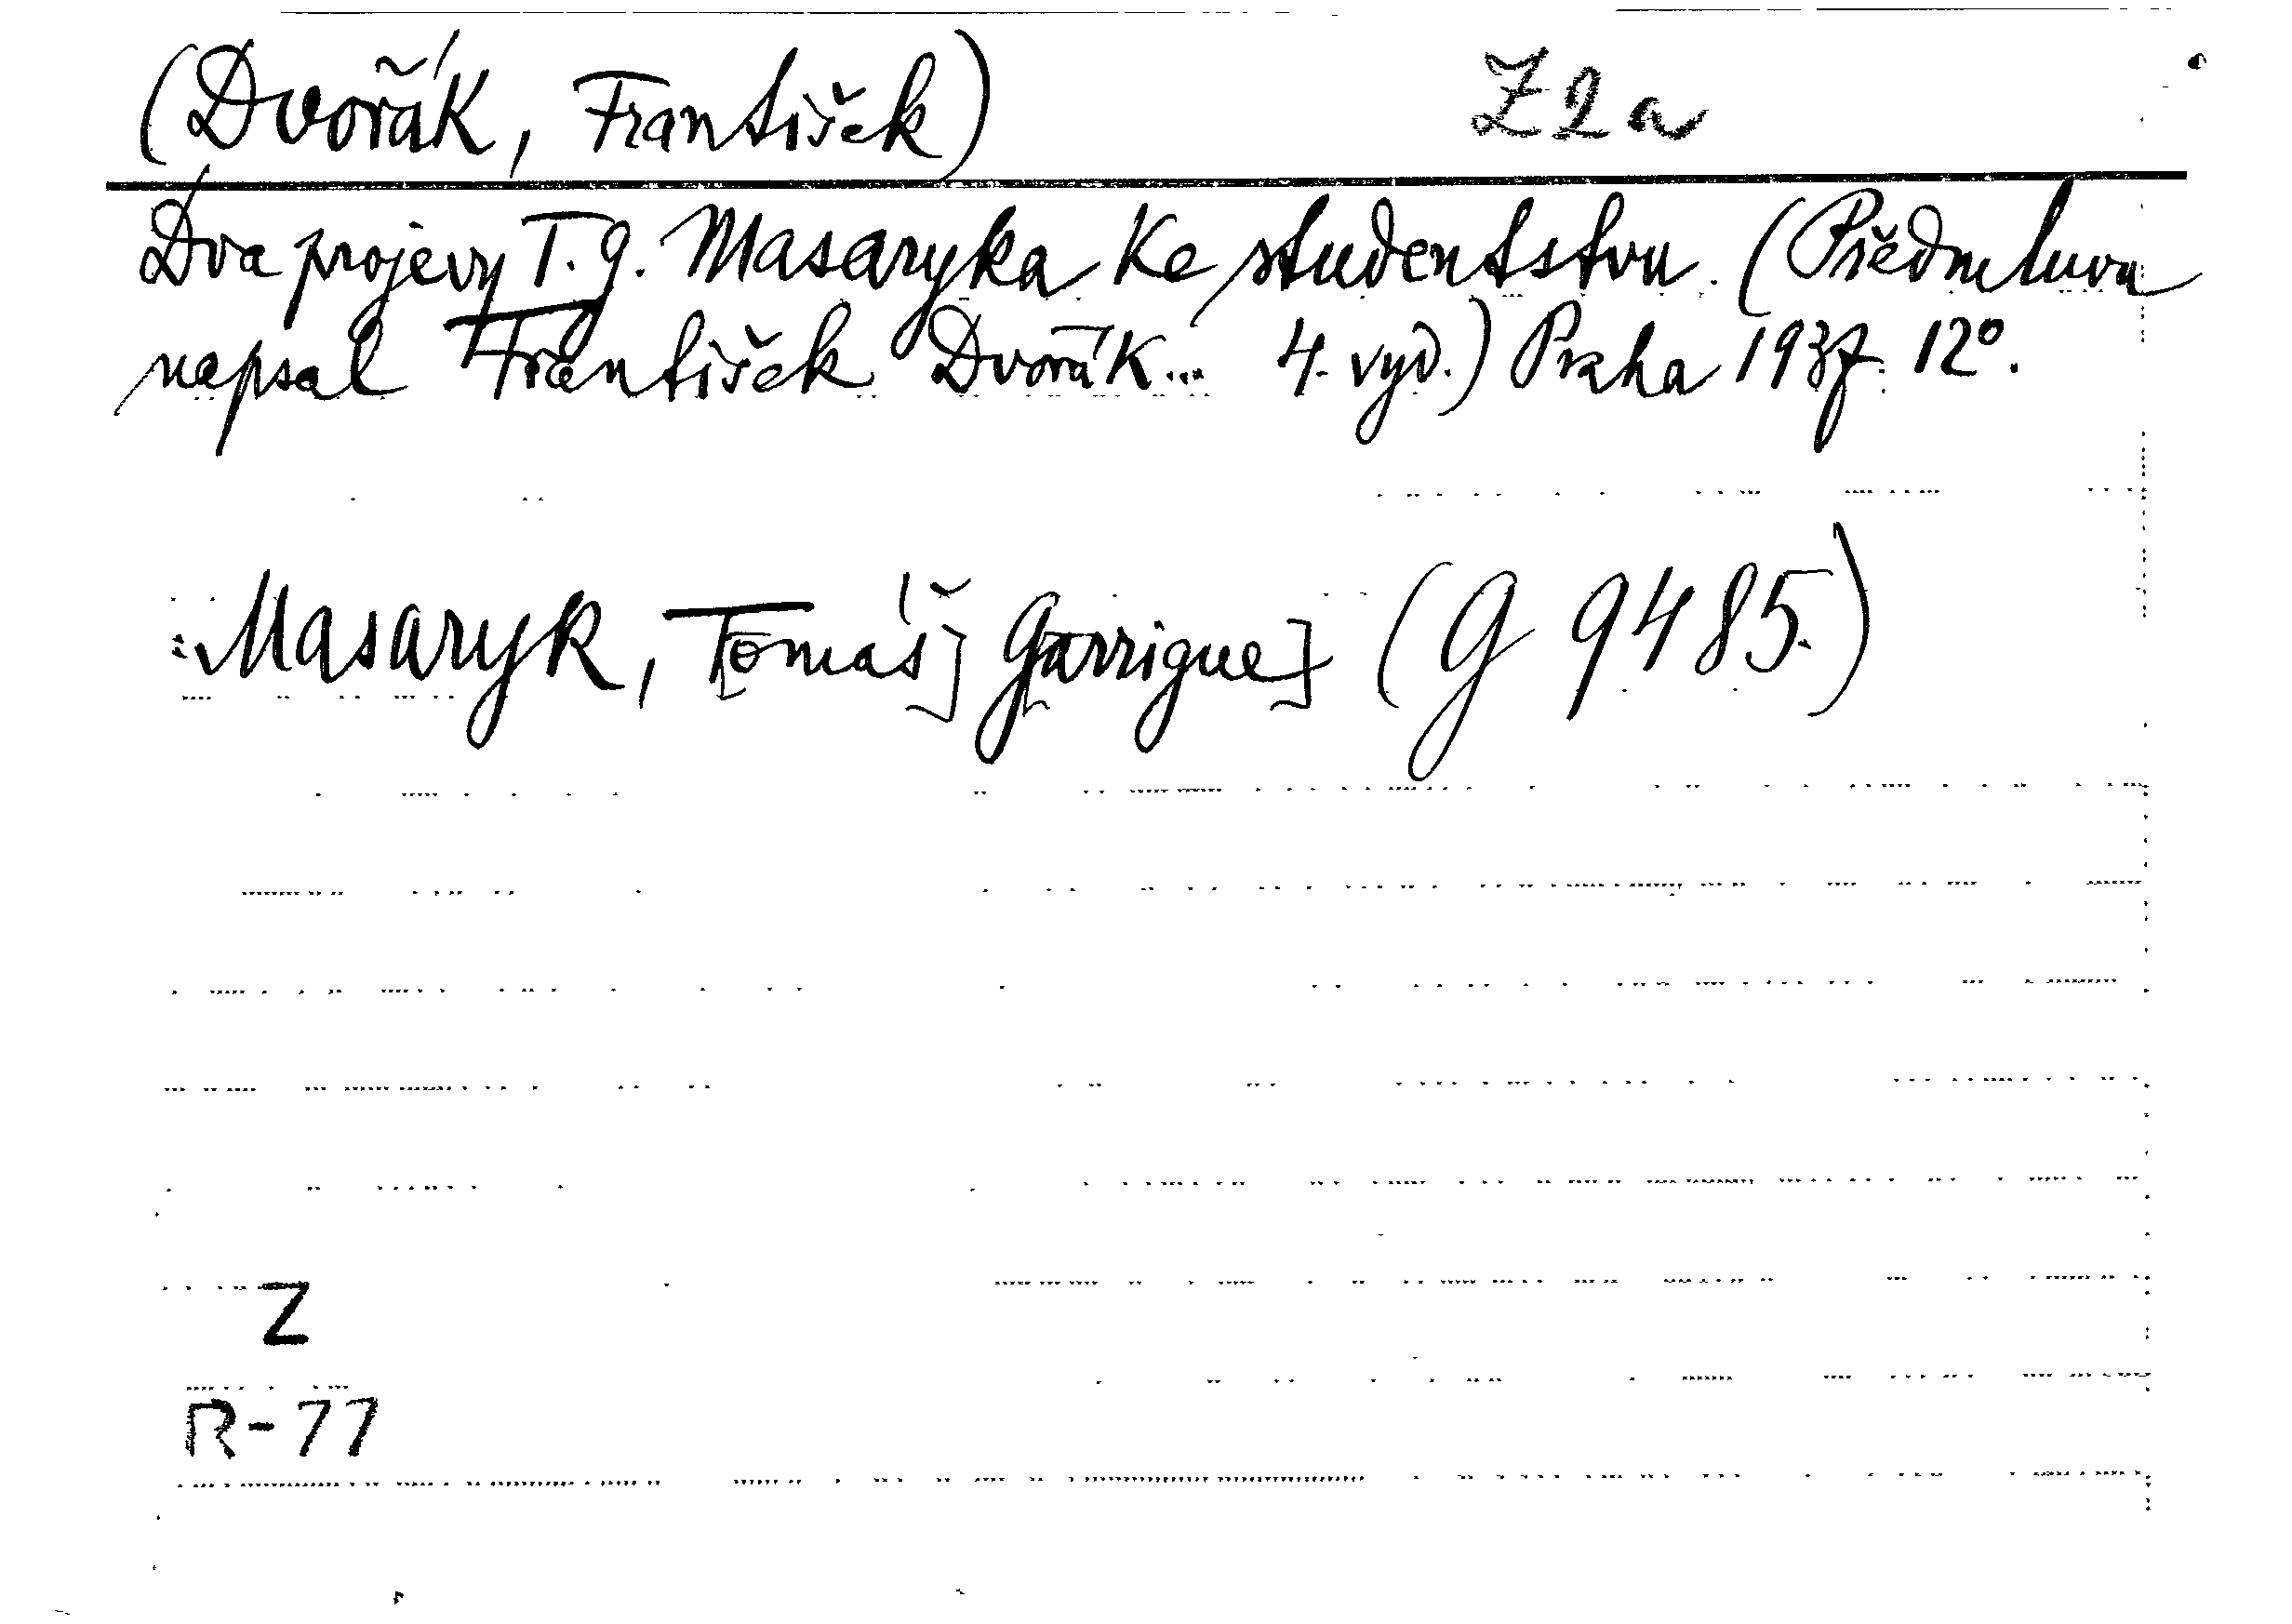 (Dvořák, František) Z2a
Dva projevy T. G. Masaryka ke studentstvu. (Předmluvu
napsal František Dvořák... 4. vyd.) Praha 1937. 12°.
: Masaryk, T[omáš] G[arrigue] (G 9485.)
Z
R-77